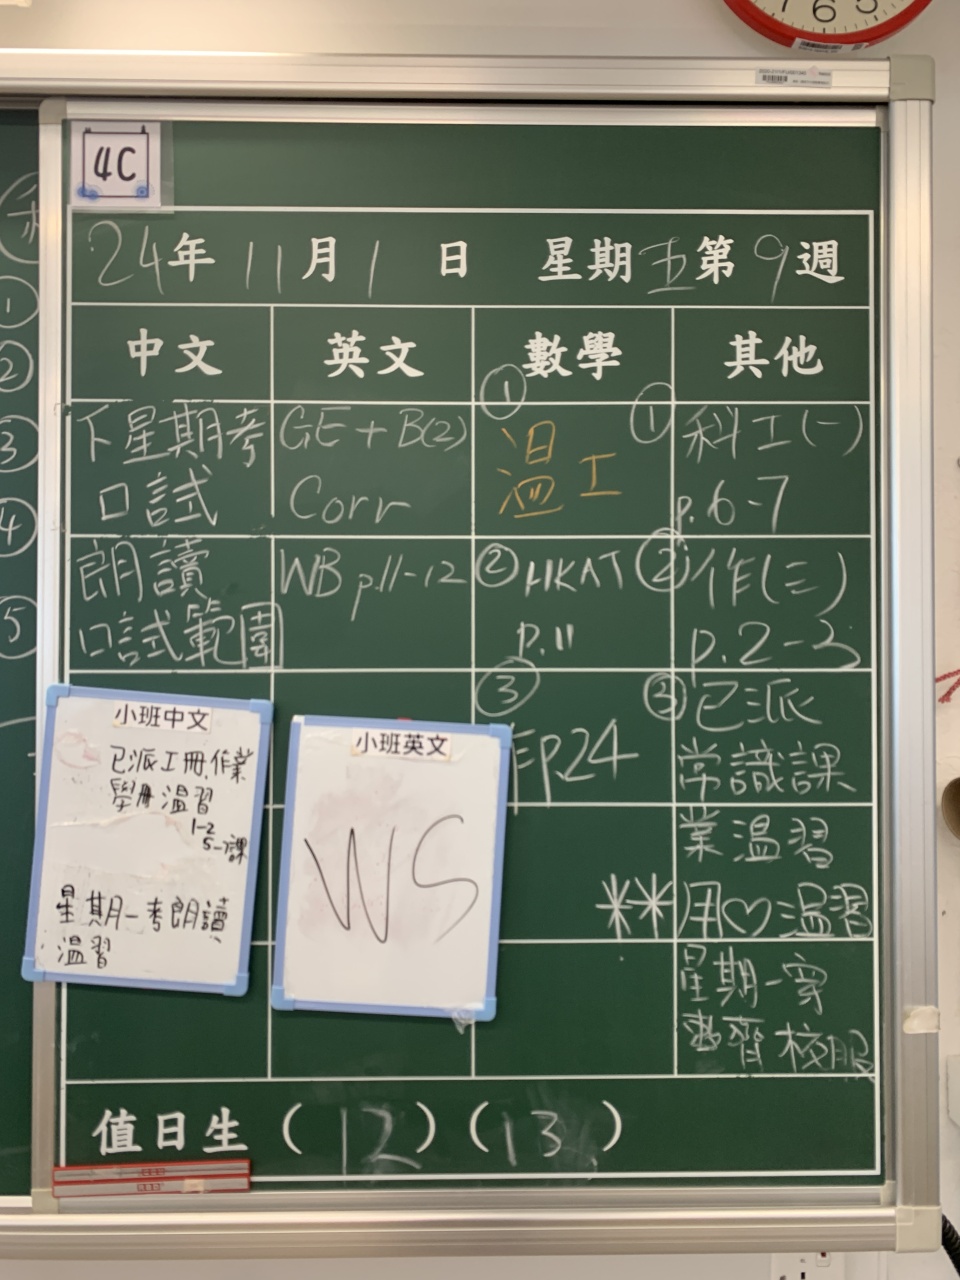 7 6 5
4C
24年 11月1日 星期五第9週
中文 英文 數學 其他
下星期考
口試
朗讀
口試範圍
小班中文
已派工冊,作業
學冊 溫習
1-2
5-7課
星期一考朗讀
溫習
GE + B(2)
Corr
WB p.11-12
小班英文
WS
①
溫工
② HKAT
p.11
③
Ep.24
① 科工(一)
p.6-7
② 作(三)
p.2-3
③ 已派
常識課
業溫習
**用♡溫習
星期一穿
齊校服
值日生(12)(13)
①
②
③
④
⑤